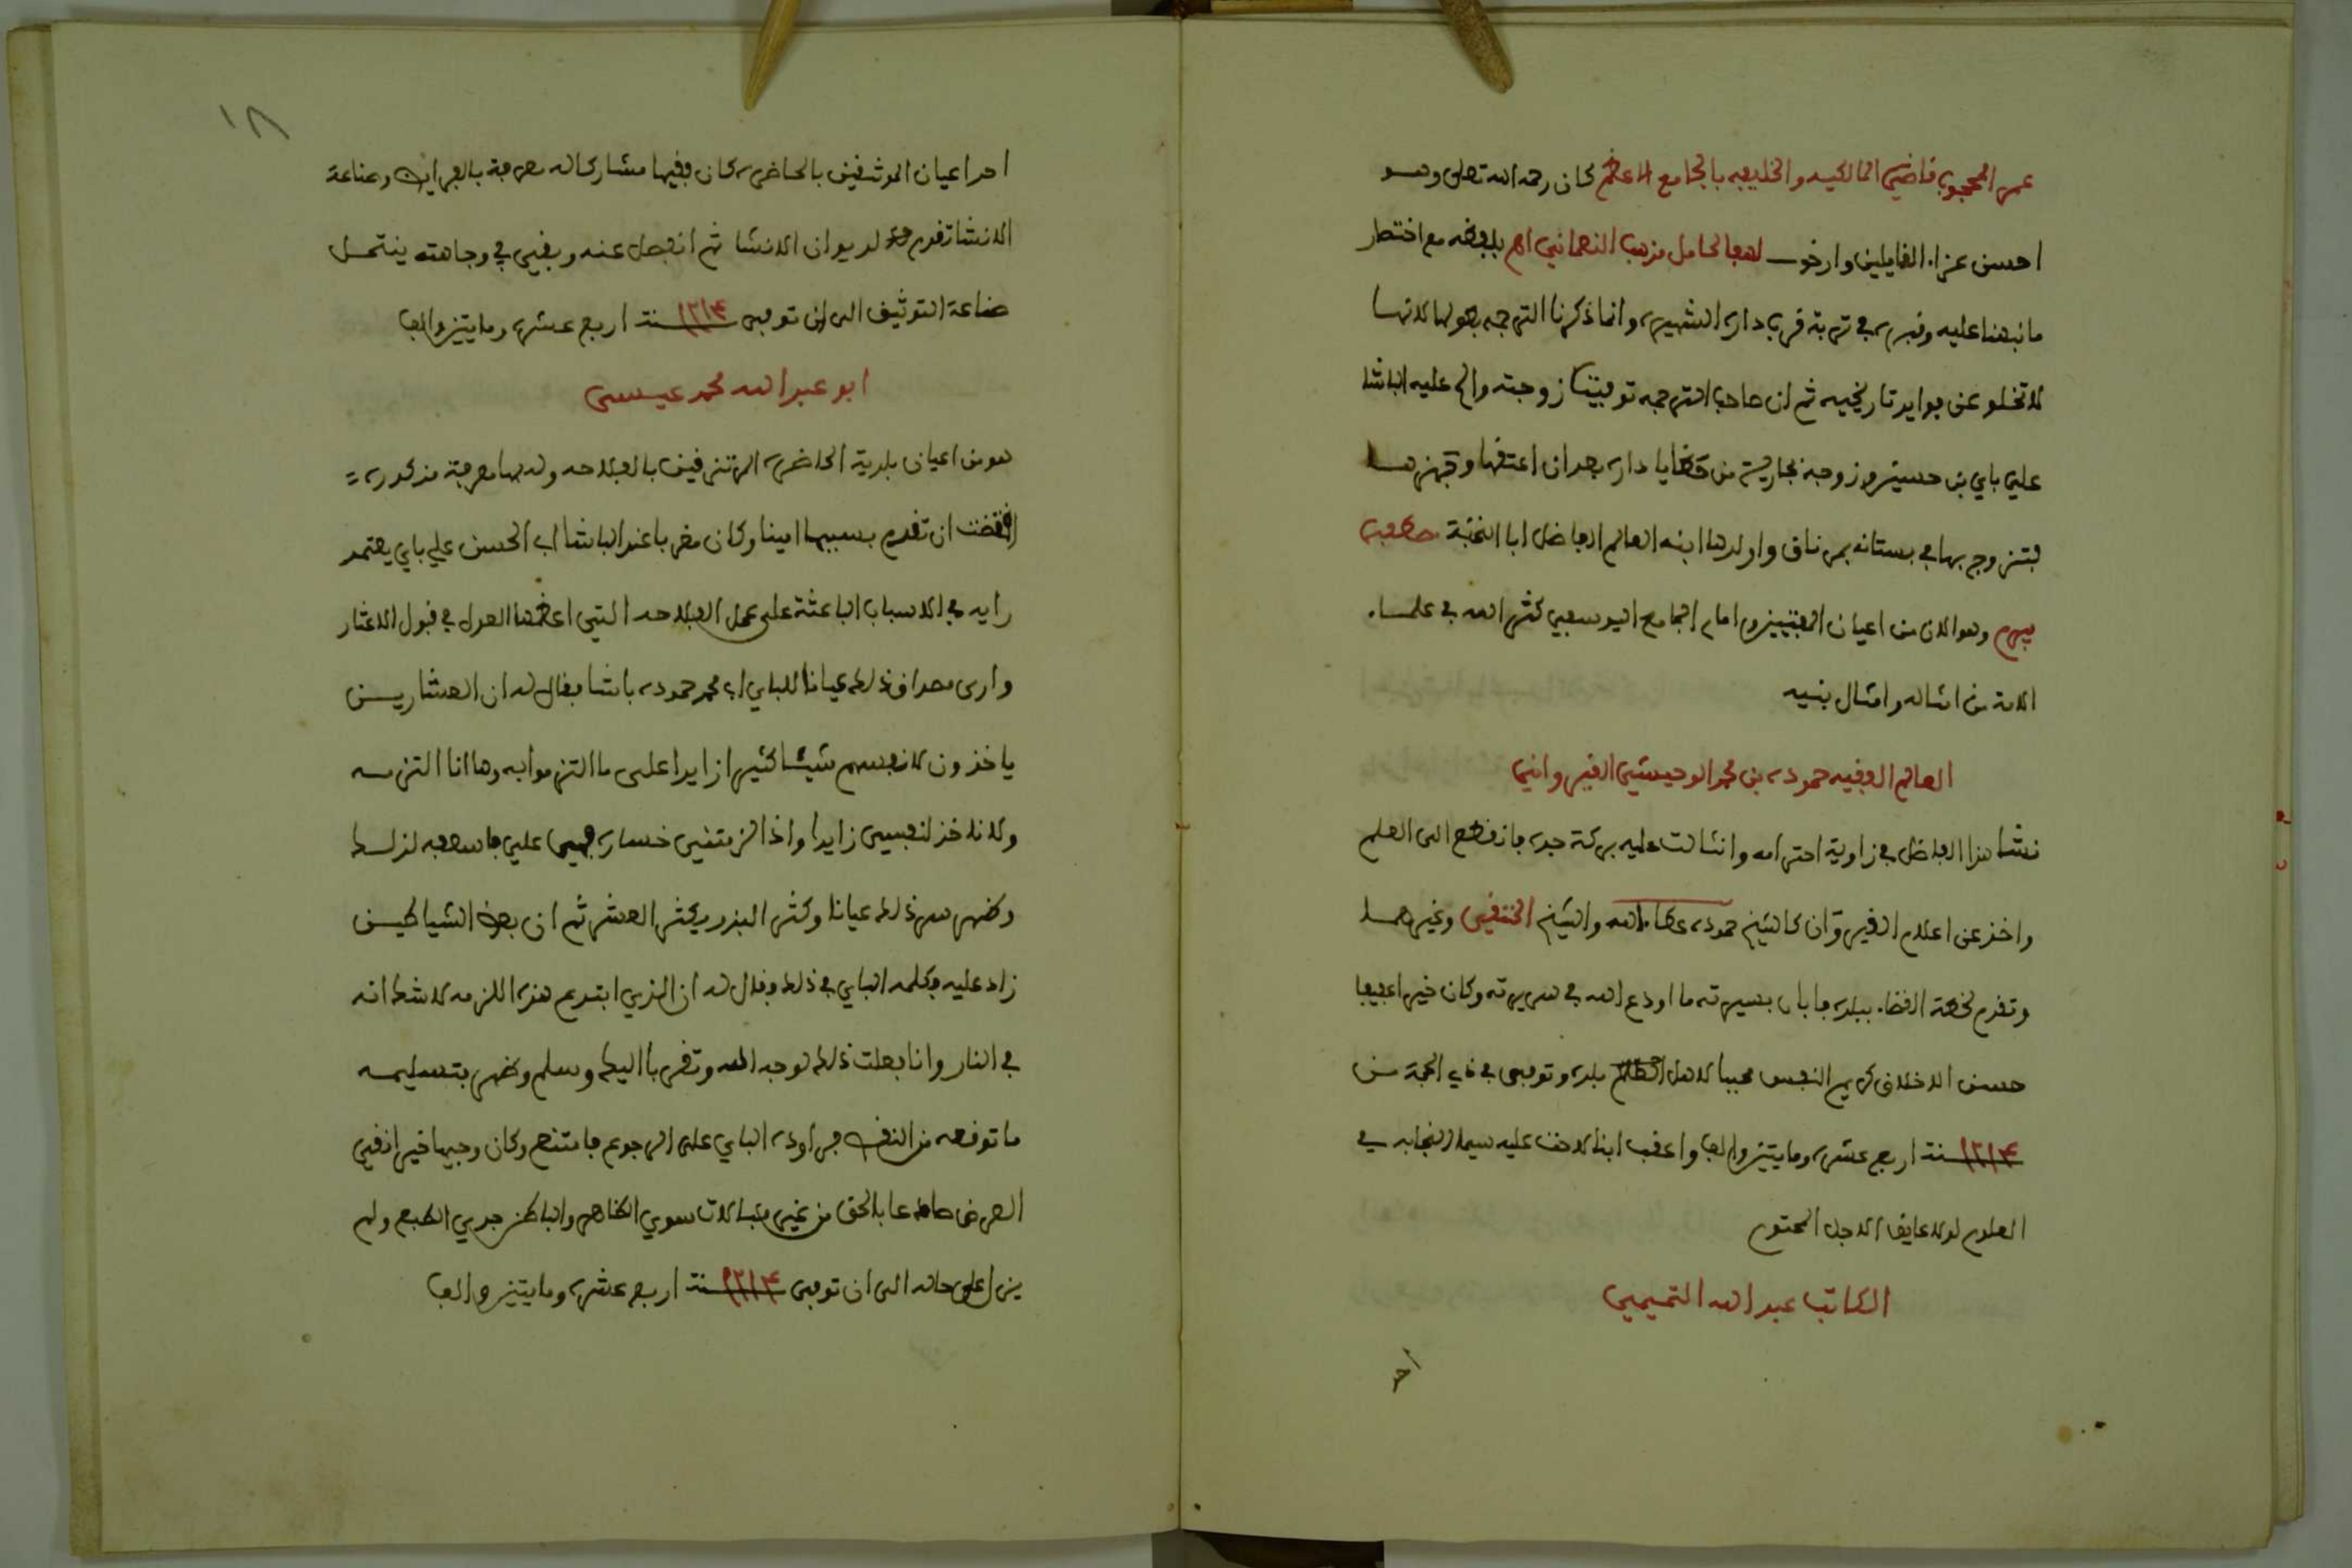 عمر المحجوب قاضي المالكيه والخليفه بالجامع الاعظم كان رحمه الله تعلى وهو
احسن عزاء القايلين وارخو لهفا لحامل مذهب النعماني اهـ بلفظه مع اختصار
ما نبهنا عليه وقبره في تربة قرب داره الشهيره وانما ذكرنا الترجمه بطولها لانها
لا تخلو عن فوايد تاريخيه ثم ان صاحب الترجمه توفيت زوجته والح عليه الباشا
علي باي بن حسين وزوجه بجارية من حظايا داره بعد ان اعتقها وجهزها
فتزوج بها في بستانه بمرناق واولدها ابنه العالم الفاضل ابا النخبة مصطفى
بيرم وهو الان من اعيان المفتيين وامام الجامع اليوسفي كثر الله في علماء
الامة من امثاله وامثال بنيه
العالم الفقيه حموده بن محمد الوحيشي القيرواني
نشا هذا الفاضل في زاوية احترامه وانثالت عليه بركة جده فانقطع الى العلم
واخذ عن اعلام القيروان كالشيخ حموده عطاء الله والشيخ الخنقي وغيرهما
وتقدم لخطة القضاء ببلده فابان بسيرته ما اودع الله في سريرته وكان خيرا عفيفا
حسن الاخلاق كريم النفس محبا لاهل بلده وتوفي في ذي الحجة من
١٢١٤ سنة اربع عشرة ومايتين والف واعقب ابنا لاحت عليه سيما النجابه في
العلوم لولا عايق الاجل المحتوم
الكاتب عبد الله التميمي
احد
١٨
احد اعيان الموثقين بالحاضره كان فقيها مشاركا له معرفة بالفرايض وصناعة
الانشا تقدم لديوان الانشا ثم انفصل عنه وبقي في وجاهته ينتحل
صناعة التوثيق الى ان توفي ١٢١٤ سنة اربع عشره ومايتين والف
ابو عبد الله محمد عيسى
هو من اعيان بلدية الحاضرة المرتزقين بالفلاحه وله بها معرفة مذكوره
اقتضت ان تقدم بسببها امينا وكان مقربا عند الباشا اب الحسن علي باي يعتمد
رايه في الاسباب الباعثة على عمل الفلاحه التي اعظمها العدل في قبول الاعشار
وارى مصداق ذلك عيانا للباي اب محمد حموده باشا فقال له ان العشارين
ياخذون لانفسهم شيئا كثيرا زايدا على ما التزموا به وها انا التزمه
ولا ناخذ لنفسي زايدا واذا لزمتني خسارة فهي علي فاسعفه لذلك
وظهر سر ذلك عيانا وكثر البذر بكثر العشر ثم ان بعض الشياطين
زاد عليه وكلمه الباي في ذلك وقال له ان الذي ابتدع هذه اللزمه لا شك انه
في النار وانا فعلت ذلك لوجه الله وتقربا اليك وسلم وظهر بتسليمه
ما توقعه من النقص فراوده الباي على الرجوع فامتنع وكان وجيها خيرا نقي
العرض صادعا بالحق من غير مبالات سوي الظاهر والباطن جدي الطبع ولم
يزل على حاله الى ان توفي ١٢١٤ سنة اربع عشرة ومايتين والف